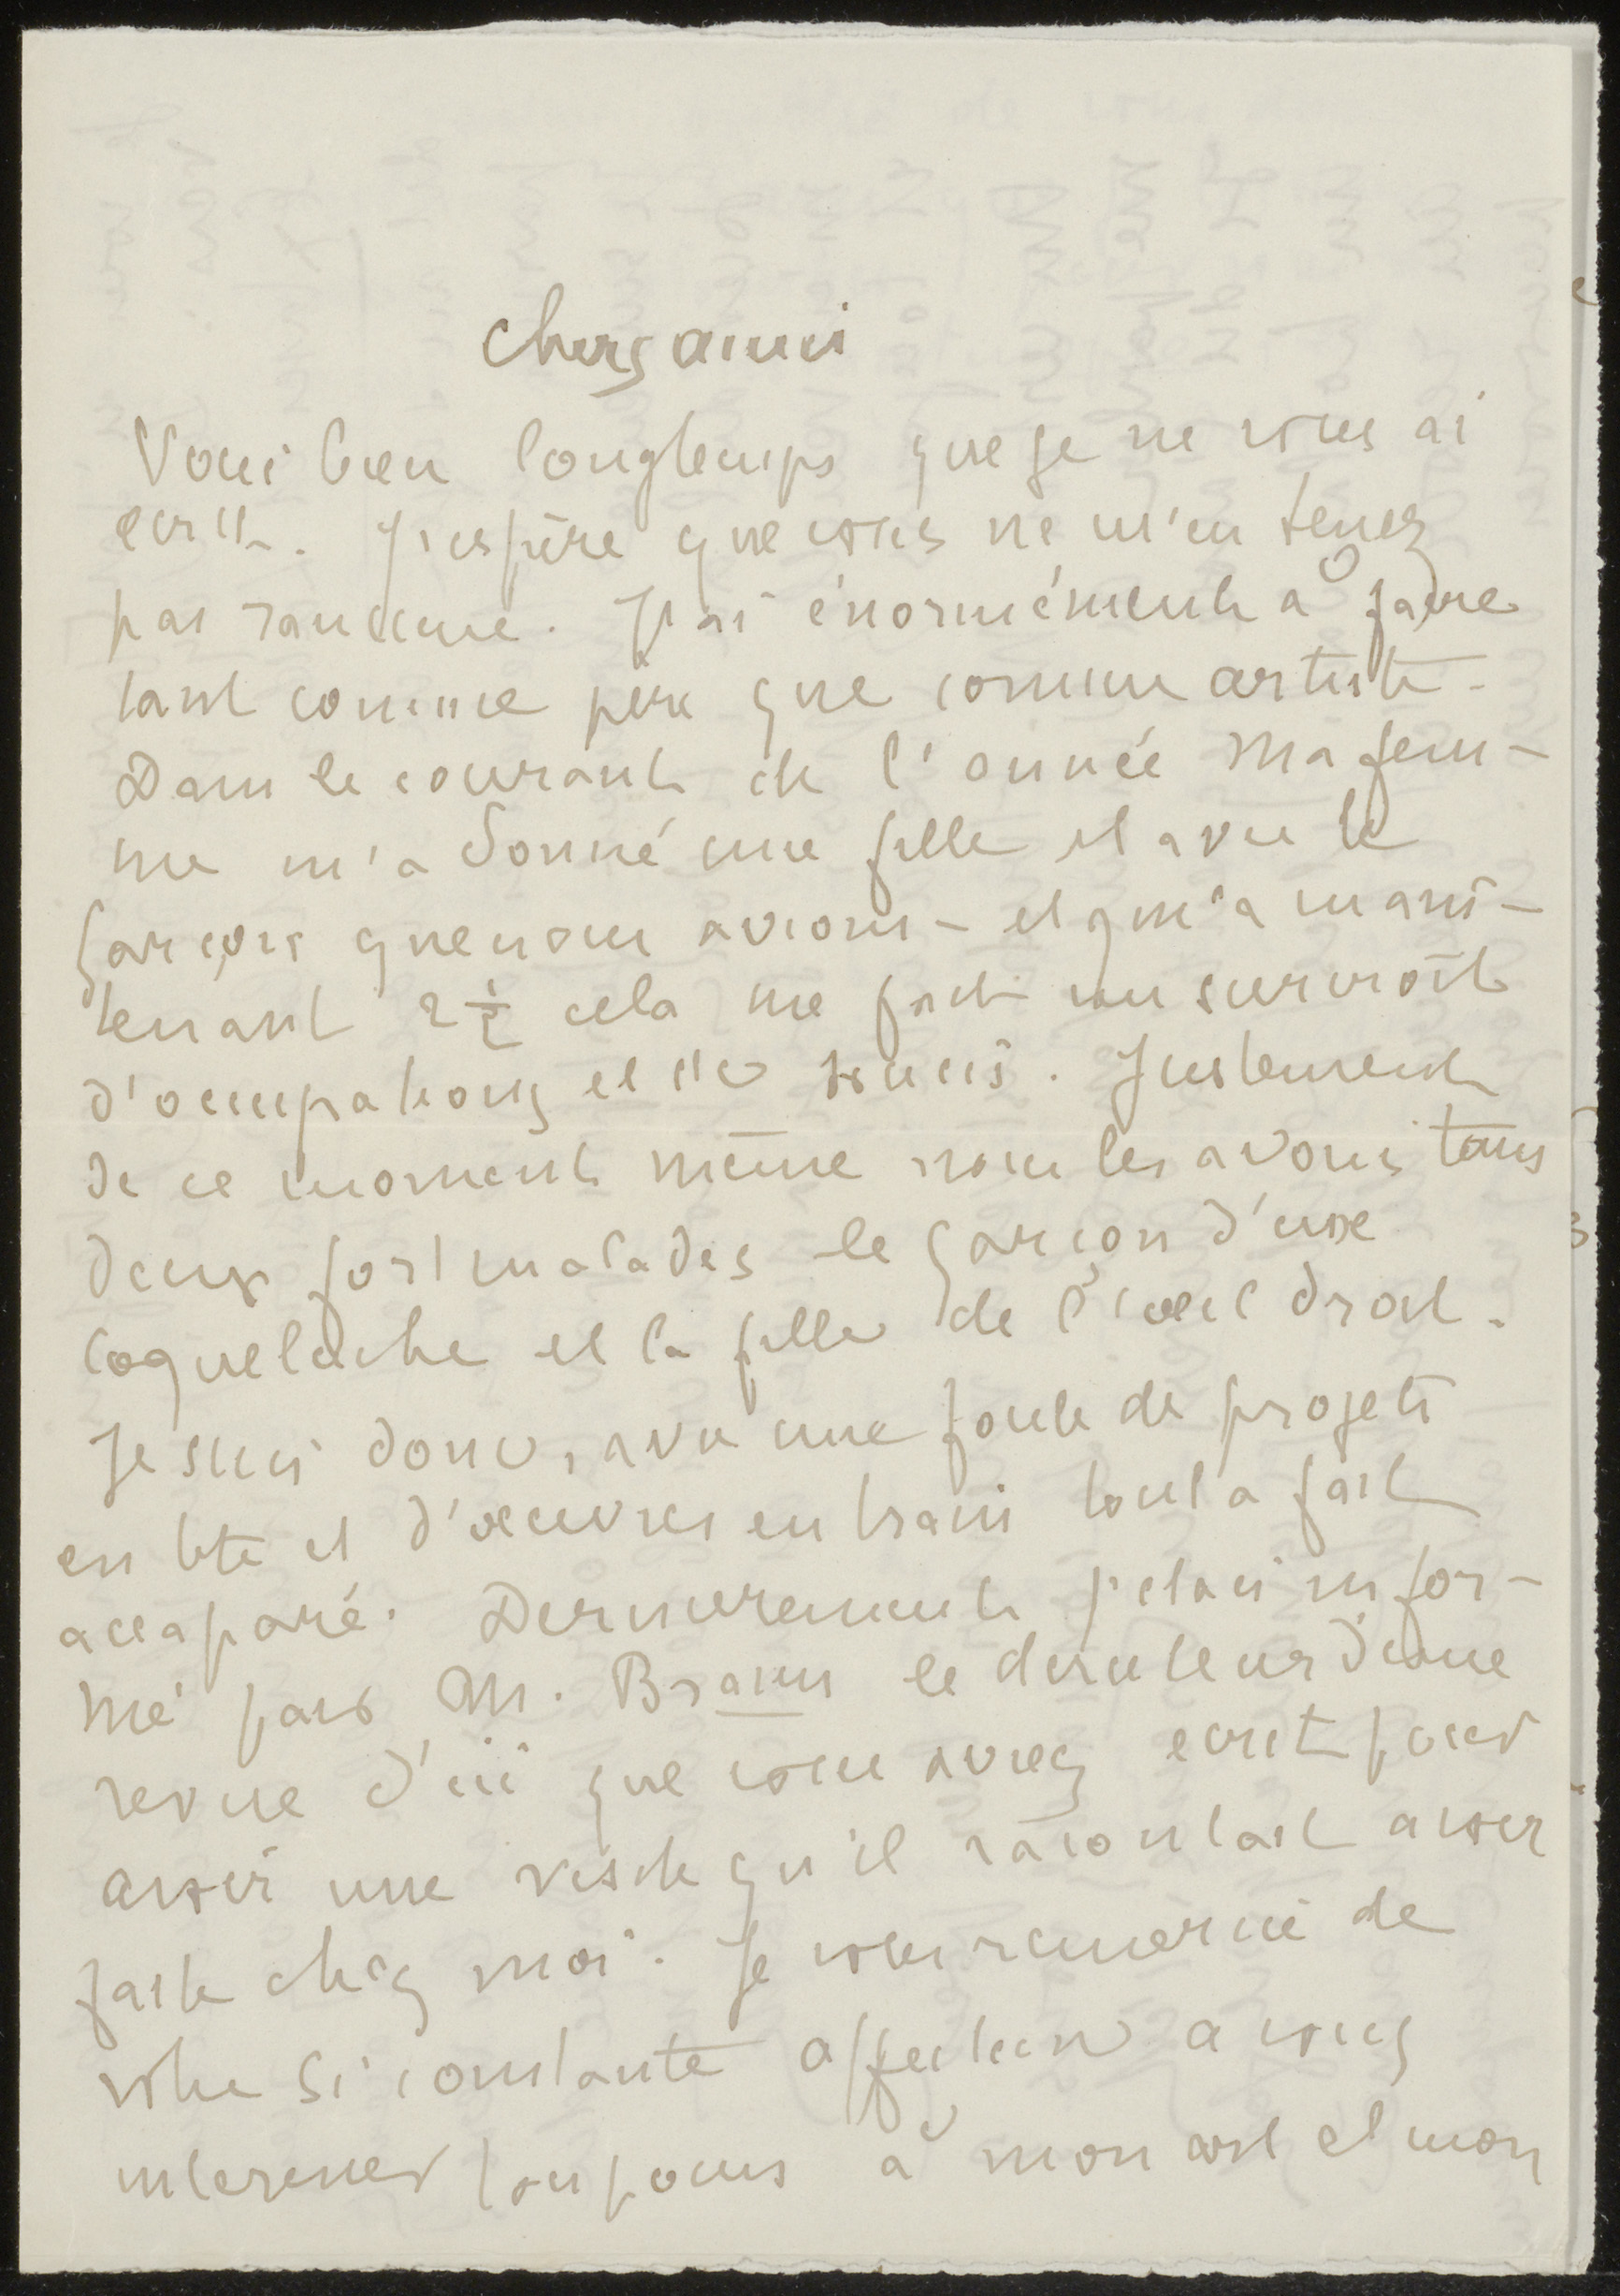 Chers amis
Voici bien longtemps que je ne vous ai
ecrit. J'espère que vous ne m'en tenez
pas rancune. J'ai énormément à faire
tant comme père que comme artiste.
Dans le courant de l'année ma fem-
me m'a donné une fille et avec le
garçon que nous avions - et qui a main-
tenant 2 1/2 cela me fait un surcroît
d'occupations et de soucis. Justement
de ce moment même nous les avons tous
deux fort malades le garçon d'une
coqueluche et la fille de l'oeil droit.
Je suis donc, avec une foule de projets
en tete et d'oeuvres en train tout a fait
accaparé. Dernierement j'etais infor-
mé par M. Braun le directeur d'une
revue d'ici que vous aviez ecrit pour
avoir une visite qu'il racontait avoir
faite chez moi. Je vous remercie de
votre si constante affection a vous
interesser toujours à mon art et mon